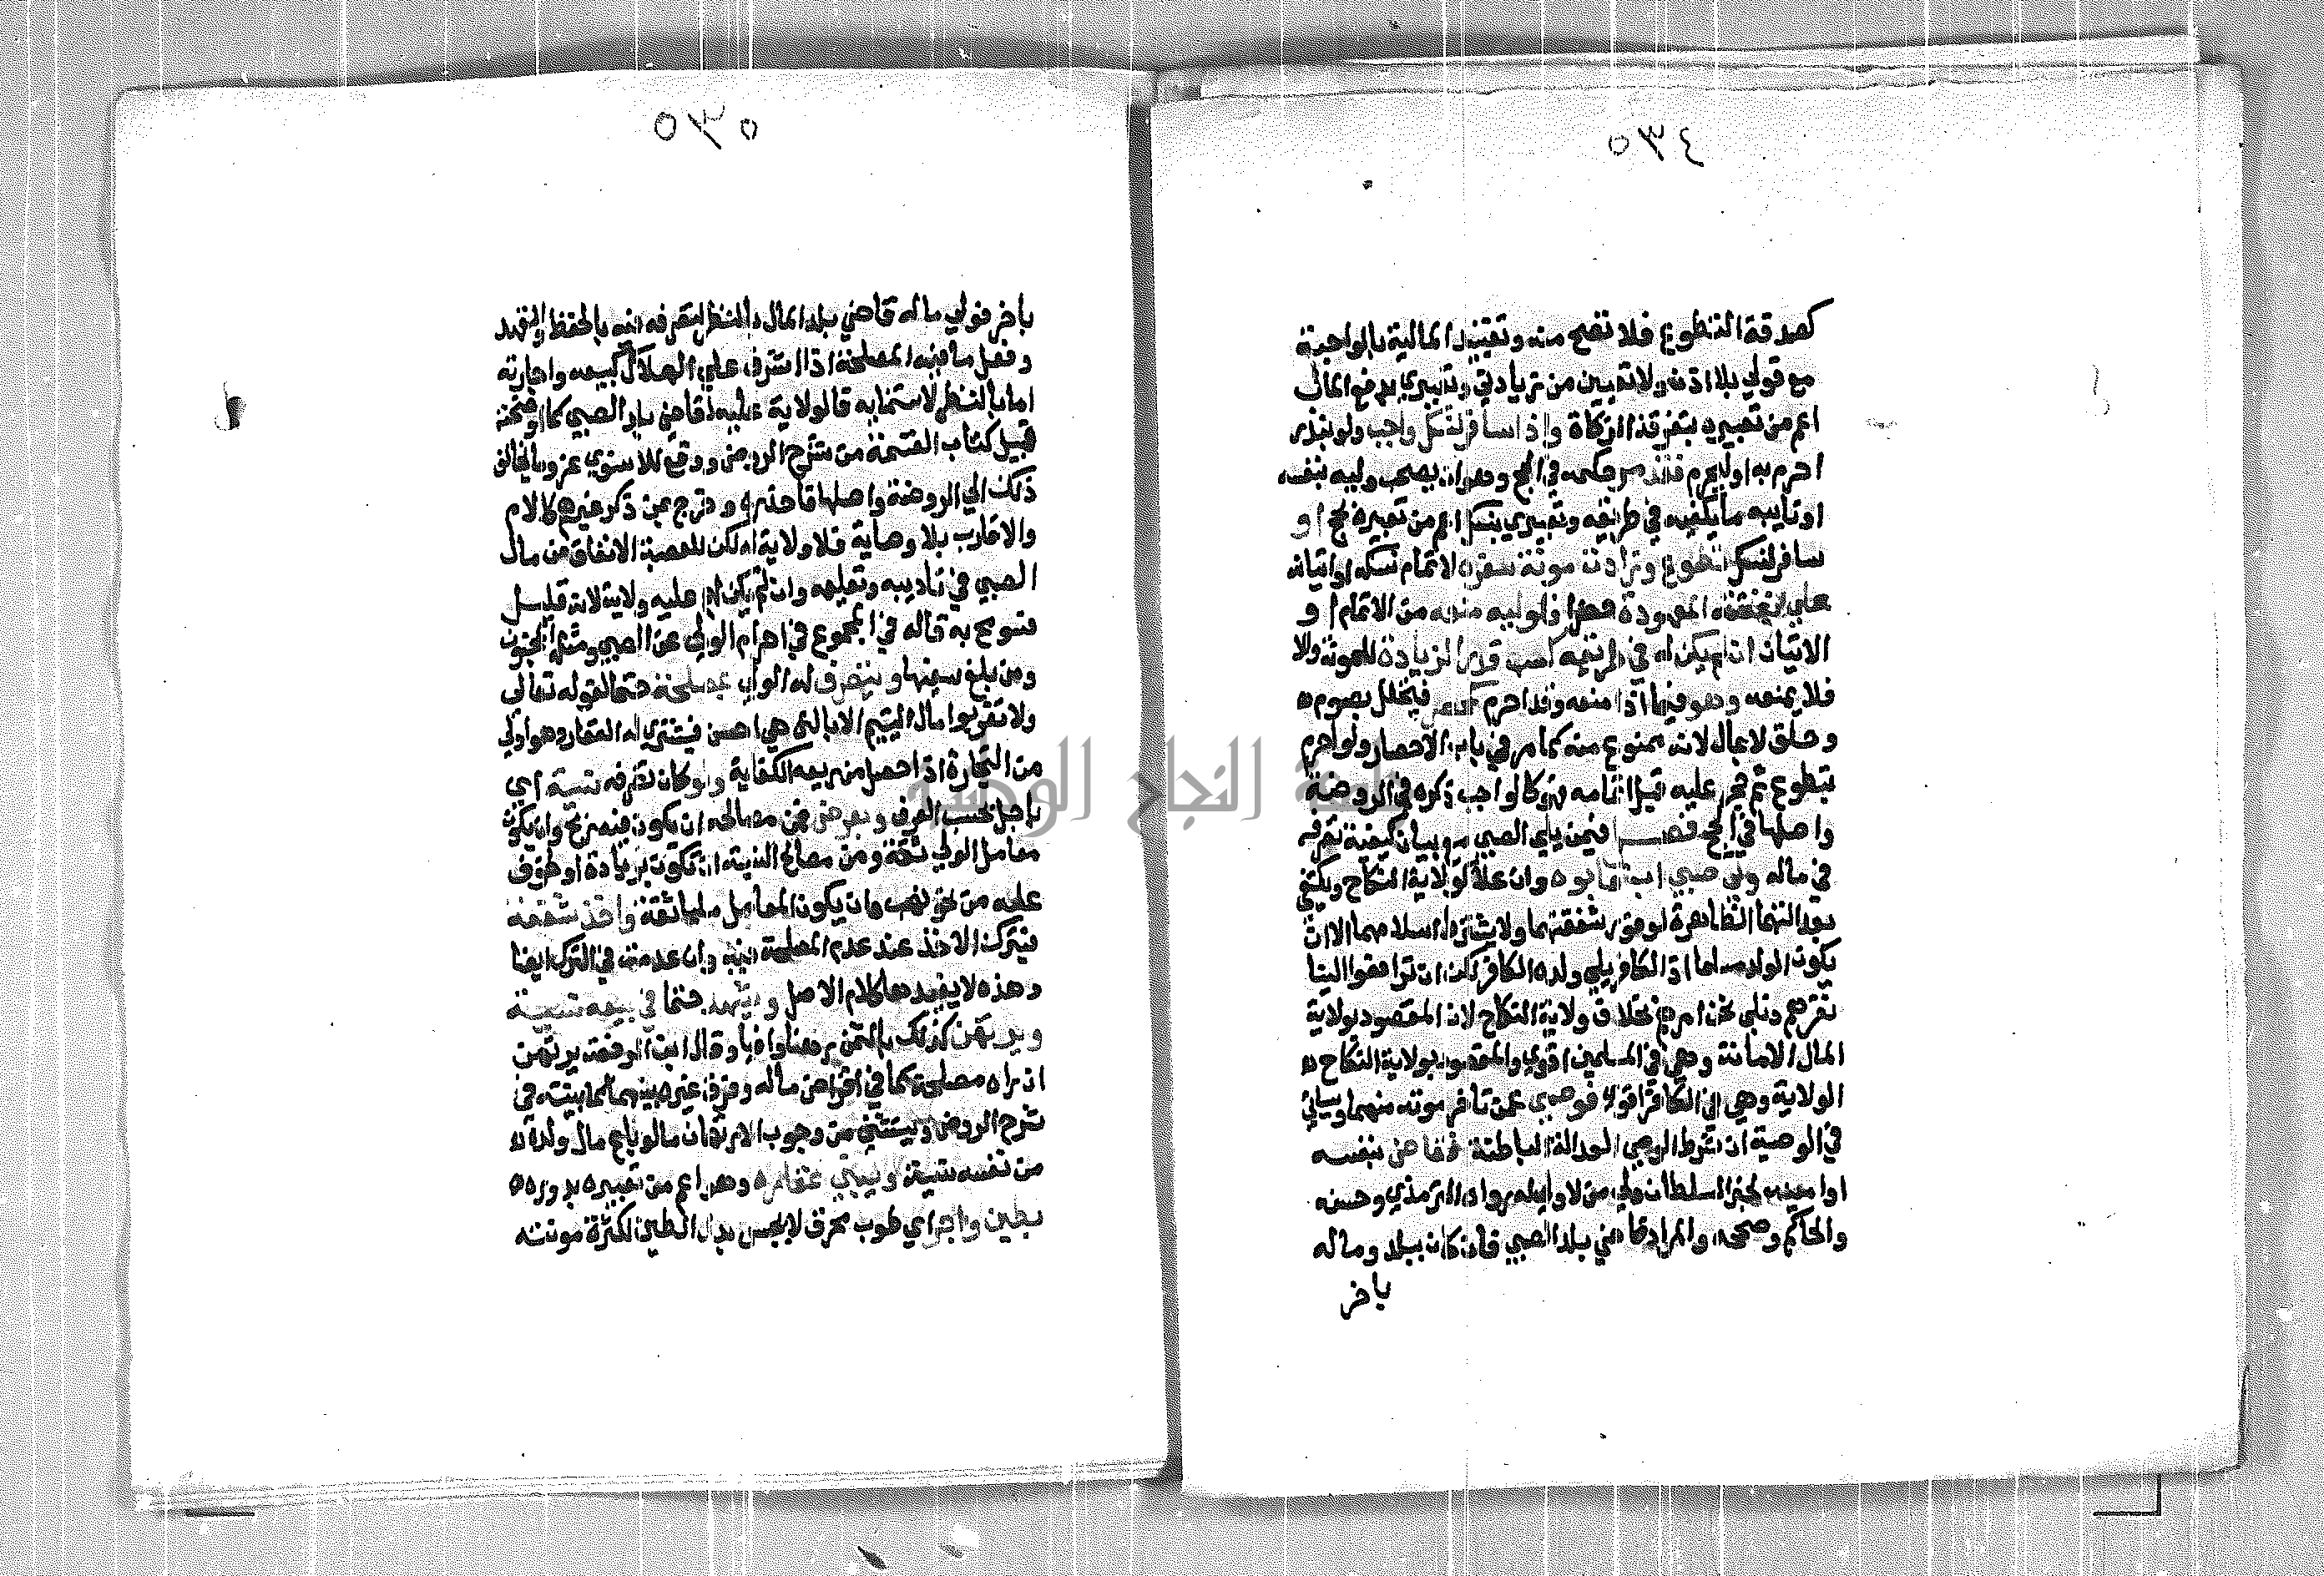 ٥٣٤
كصدقة التطوع فلا تصح منه وتقييد المالية بالواجبة
مع قولي بلا اذن ولا تعيين من زيادتي وتعبيري بدفع المال
اعم من تعبيره بتفرقة الزكاة واذا سافر لنسك واجب ولو بنذر
احرم به او ليحرم فقد مر حكمه في الحج وهو ان يصحب وليه بنفسه
او نايبه ما يكفيه في طريقه وتعبيري بنسك اعم من تعبيره بحج او
سافر لنسك تطوع وزادت مونة سفره لاتمام نسكه او اتيانه
علي نفقته المعهودة حضرا فلوليه منعه من الاتمام او
الاتيان ان لم يكن له في طريقه كسب قدر الزيادة للمونة والا
فلا يمنعه وهو فيما اذا منعه وقد احرم كمحصر فيتحلل بصوم
وحلق لا بمال لانه ممنوع منه كما مر في باب الاحصار ولو احرم
بتطوع ثم حجر عليه قبل اتمامه فهو كالواجب ذكره في الروضة
واصلها في الحج فصل فيمن يلي الصبي مع بيان كيفية تصرفه
في ماله ولي صبي اب فابوه وان علا كولاية النكاح ويكتفي
بعدالتهما الظاهرة لوفور شفقتهما ولا يشترط اسلامهما الا ان
يكون الولد مسلما اذ الكافر يلي ولده الكافر لكن ان ترافعوا الينا
نقرهم ونلي نحن امرهم بخلاف ولاية النكاح لان المقصود بولاية
المال الامانة وهي في المسلمين اقوي والمقصود بولاية النكاح
الولاية وهي في الكافر اقوي فوصي عمن تاخر موته منهما وسياتي
في الوصية ان شرط الوصي العدالة الباطنة فقاض بنفسه
او امينه لخبر السلطان ولي من لا ولي له رواه الترمذي وحسنه
والحاكم وصححه والمراد قاضي بلد الصبي فان كان ببلد وماله
باخر
٥٣٥
باخر فولي ماله قاضي بلد المال بالنظر لتصرفه فيه بالحفظ والتعهد
وفعل ما فيه المصلحة اذا اشرف علي الهلاك كبيعه واجارته
اما بالنظر لاستنمايه فالولاية عليه لقاضي بلد الصبي كما اوضحته
قبيل كتاب القسمة من شرح الروض ووقع للاسنوي عزو ما يخالف
ذلك الي الروضة واصلها فاحذره وخرج بمن ذكر غيرهم كالام
والاقارب بلا وصاية فلا ولاية لهم لكن للعصبة الانفاق من مال
الصبي في تاديبه وتعليمه وان لم يكن لهم عليه ولاية لانه قليل
فسومح به قاله في المجموع في احرام الولي عن الصبي ومثله المجنون
ومن بلغ سفيها ويتصرف له الولي بمصلحة حتما لقوله تعالي
ولا تقربوا مال اليتيم الا بالتي هي احسن فيشتري له العقار وهو اولي
من التجارة اذا حصل من ريعه الكفاية ولو كان تصرفه نسية اي
باجل بحسب العرف وبعرض فمن مصالحه ان يكون فيه ربح وان يكون
معامل الولي ثقة ومن مصالح النسية ان تكون بزيادة او خوف
عليه من نحو نهب وان يكون المعامل مليا ثقة واخذ شفعة
فيترك الاخذ عند عدم المصلحة فيه وان عدمت في الترك ايضا
وهذه لا يفيدها كلام الاصل ويشهد حتما في بيعه نسية
ويرتهن كذلك بالثمن رهنا وافيا وقال ابن الرفعة يرتهن
ان راه مصلحة كما في اقراض ماله وفرق غيره بينهما كما بينته في
شرح الروض ويستثني من وجوب الارتهان ما لو باع مال ولده
من نفسه نسية ويبني عقاره وهو اعم من تعبيره بدوره
بطين واجر اي طوب محرق لا بجبس بدل الطين لكثرة مونته